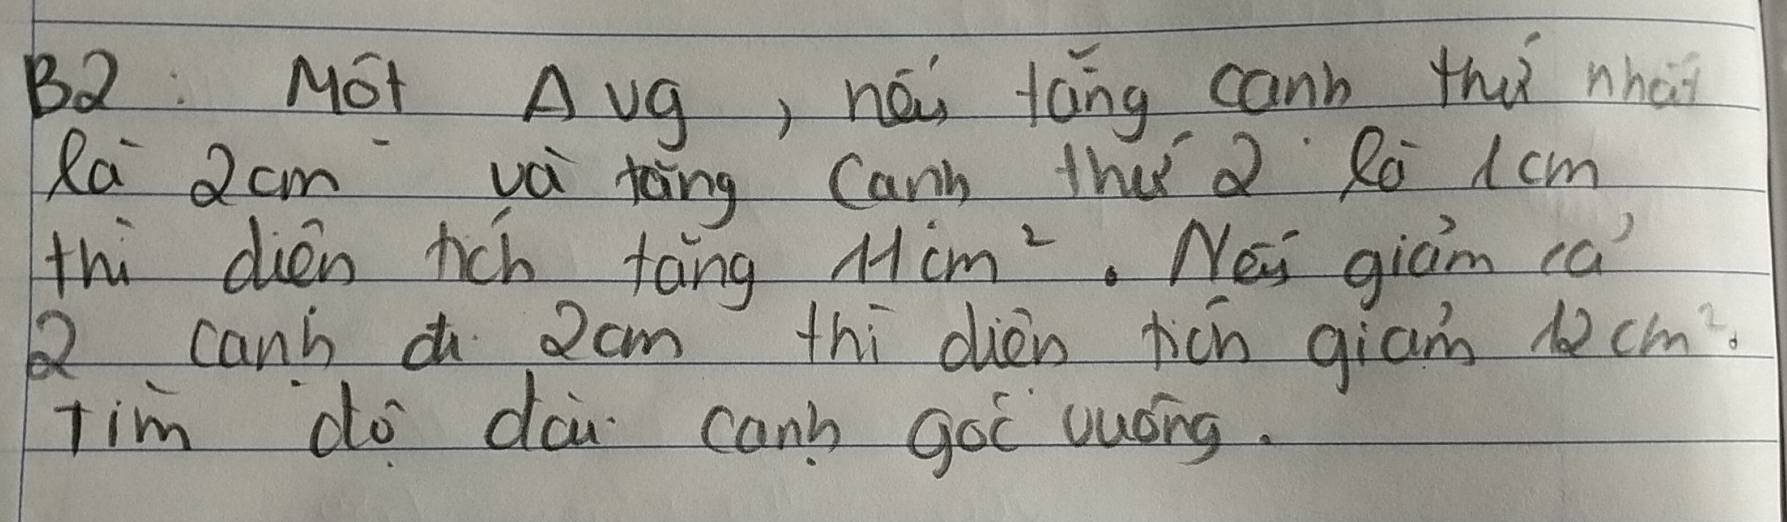 B2: Một Δ vg, nếu tăng cạnh thứ nhất
là 2cm và tăng cạnh thứ 2 là 1cm
thì diện tích tăng 11cm². Nếu giảm cả
2 cạnh đi 2cm thì diện tích giảm 12cm².
Tìm độ dài cạnh góc vuông.